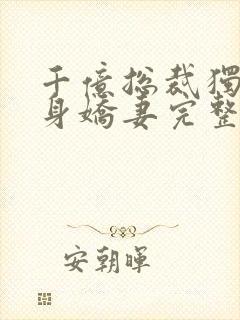 千億總裁獨
身嬌妻完整
安朝暉